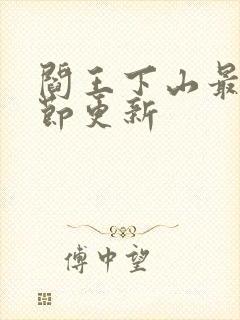 閻王下山最
節更新
傅中望